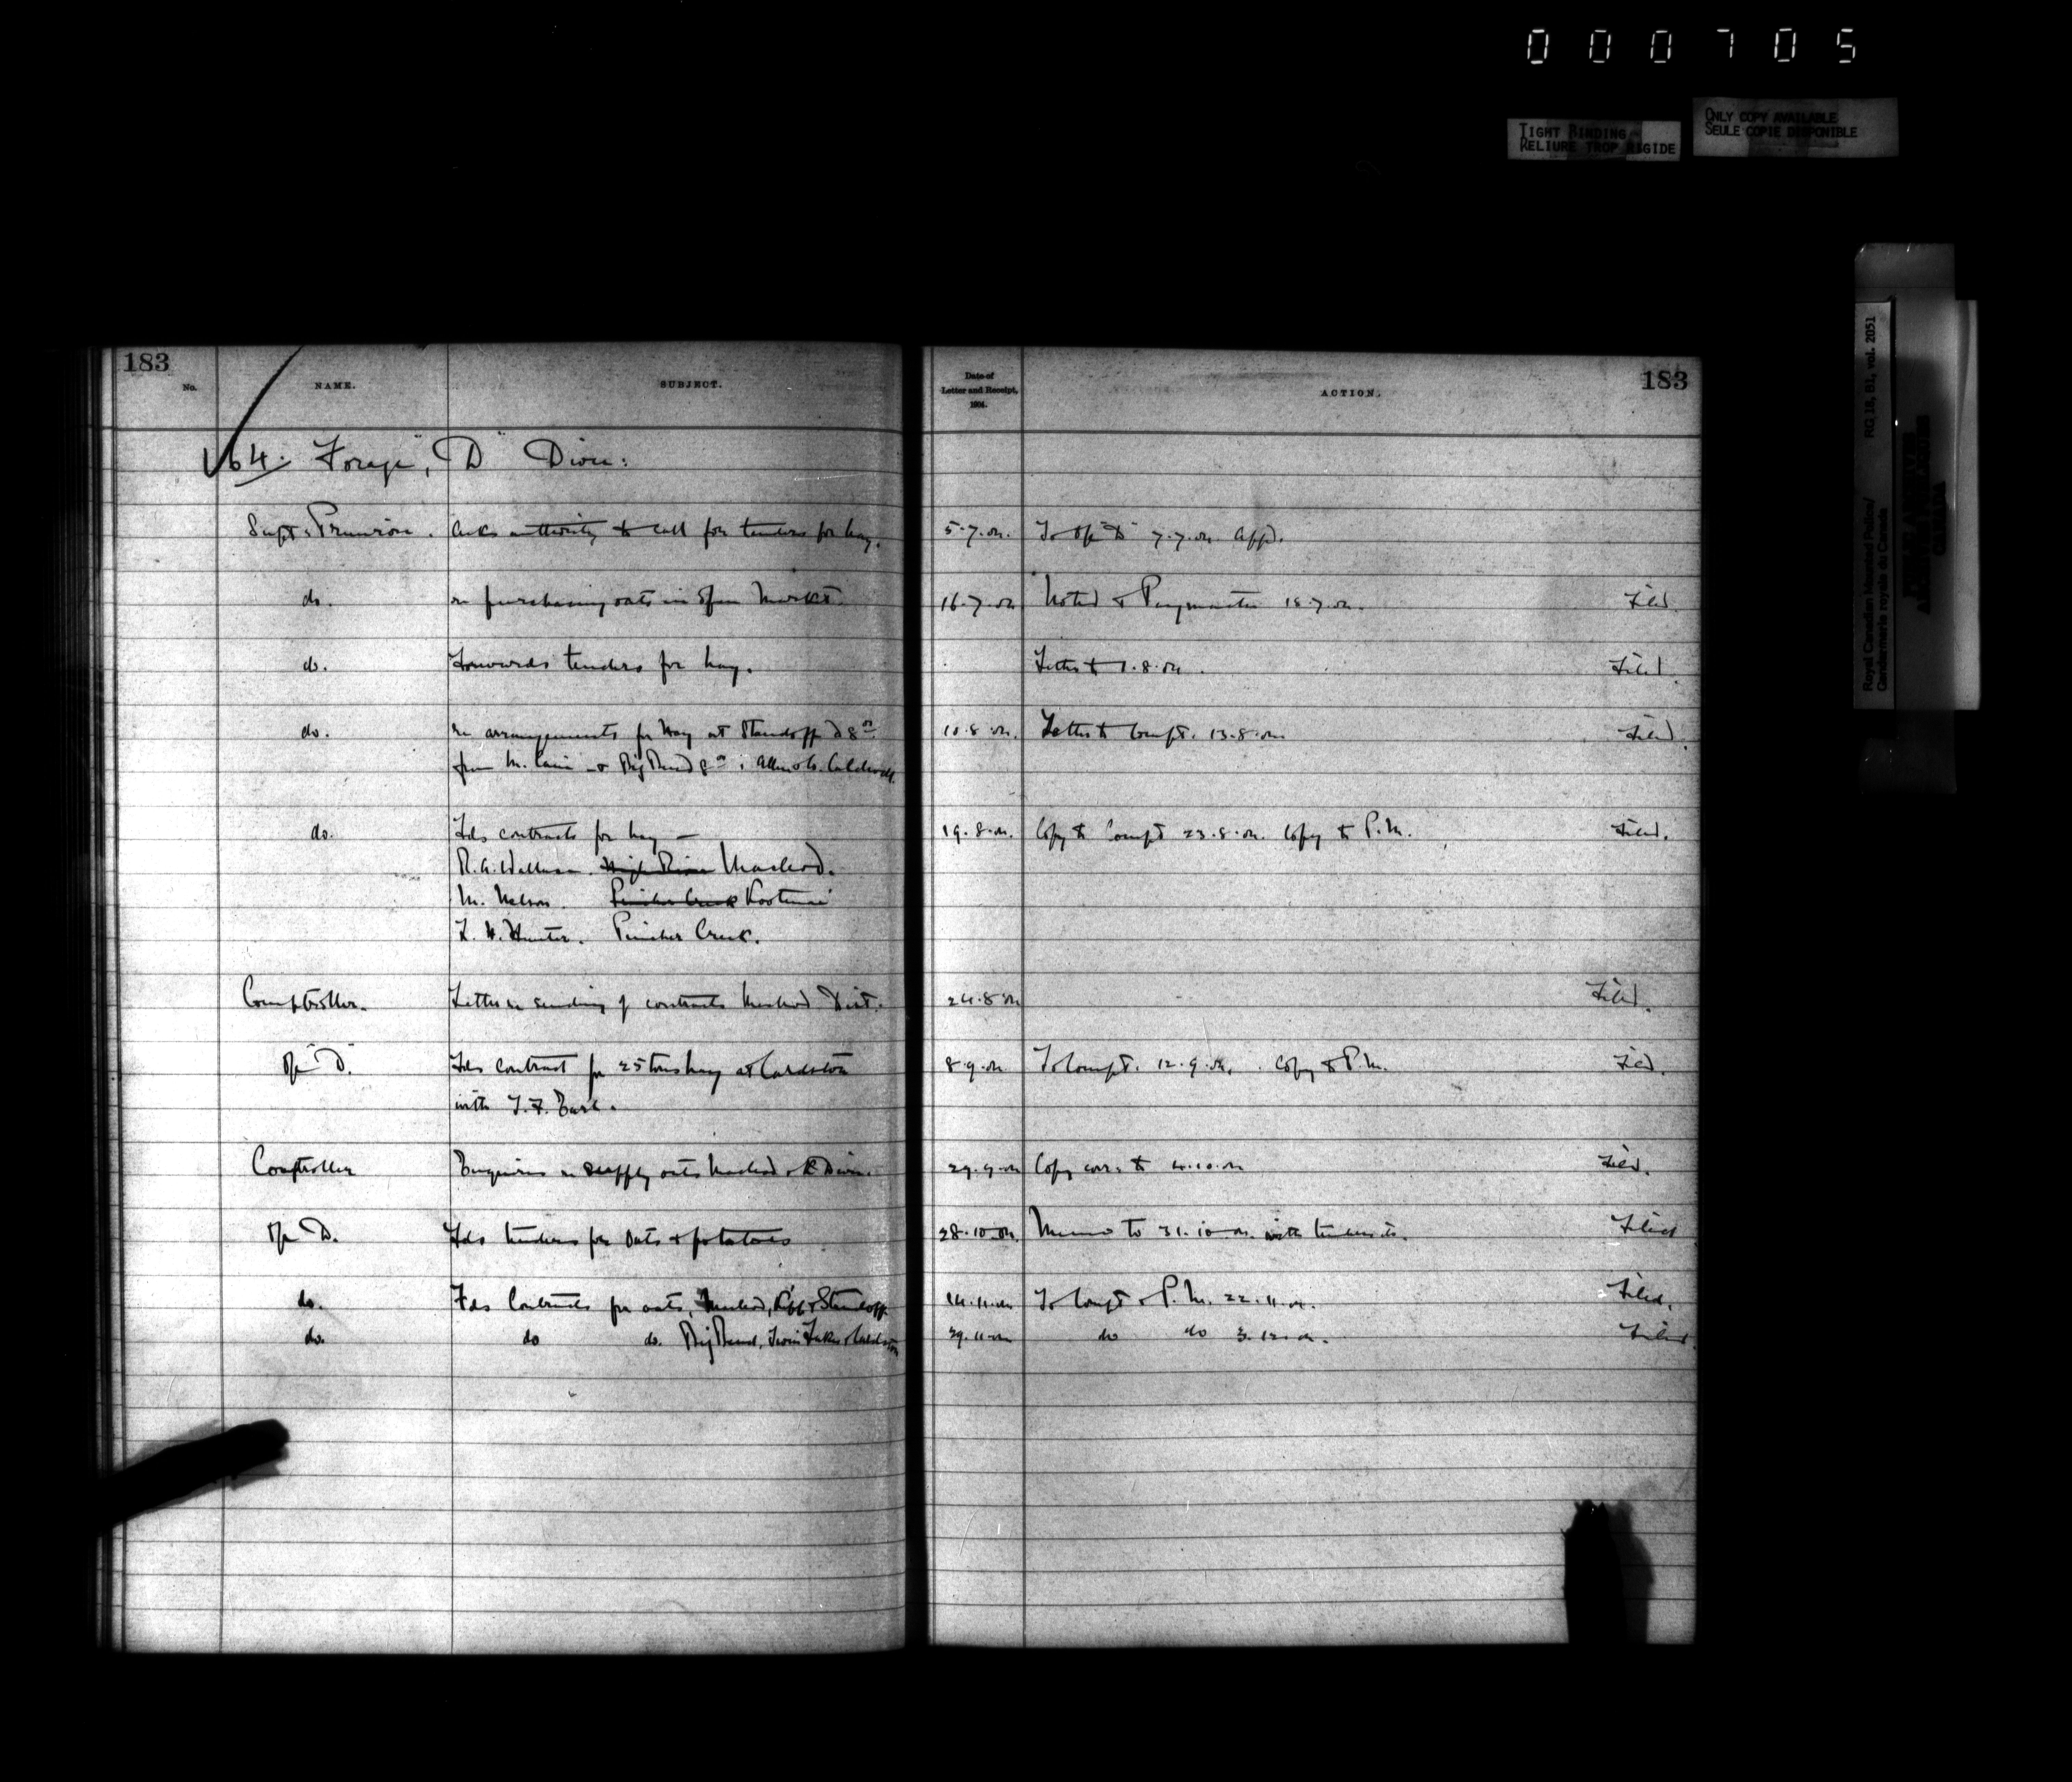 000705
TIGHT BINDING
RELIURE TROP RIGIDE
ONLY COPY AVAILABLE
SEULE COPIE DISPONIBLE
Royal Canadian Mounted Police/ RG 18, B1, vol. 2051
Gendarmerie royale du Canada
183
No. NAME. SUBJECT.
Date of Letter and Receipt, 1904. ACTION. 183
64. Forage, "D" Divn:
Supt. Primrose. Asks authority to call for tenders for hay. 5.7.04. To Of "D" 7.7.04. Appd.
do. re purchasing oats in open market. 16.7.04 Noted & Paymaster 18.7.04. Filed.
do. Forwards tenders for hay. Letter to 1.8.04. Filed.
do. re arrangements for hay at Standoff @ 8 00 10.8.04. Letter to Compt. 13.8.04 Filed.
from M. & Big Bend 8 00 : Caldwell.
do. Fds contracts for hay — 19.8.04. Copy to Compt 23.8.04. Copy to P.M. Filed.
R.A. High River Macleod.
M. Nelson. Pincher Creek Kootenai
F. W. Hunter. Pincher Creek.
Comptroller. Letter re sending of contracts Macleod Dist. 24.8.04 Filed.
Of "D". Fds contract for 25 tons hay at Cardston 8.9.04. To Compt. 12.9.04. Copy to P.M. Filed.
with T.F. Earl.
Comptroller Enquiries re supply oats Macleod & K Divn. 29.9.04 Copy corr. to 4.10.04 Filed.
Of D. Fds tenders for oats & potatoes 28.10.04. Memo to 31.10.04. with tenders. Filed
do. Fds Contracts for oats, Macleod, Kipp & Standoff 14.11.04 To Compt & P.M. 22.11.04. Filed.
do. do do. Big Bend, Twin Lakes & Cardston 29.11.04 do do 3.12.04. Filed.